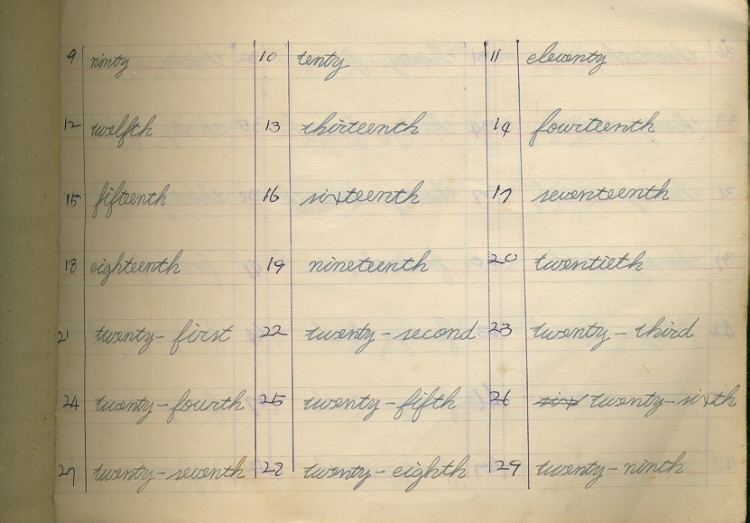 9 ninty 10 tenty 11 eleventy
12 twelfth 13 thirteenth 14 fourteenth
15 fifteenth 16 sixteenth 17 seventeenth
18 eighteenth 19 nineteenth 20 twentieth
21 twenty-first 22 twenty-second 23 twenty-third
24 twenty-fourth 25 twenty-fifth 26 six twenty-sixth
27 twenty-seventh 28 twenty-eighth 29 twenty-ninth